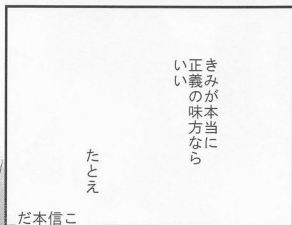 きみが本当に
正義の味方なら
いい
たとえ
こ
信
本
だ